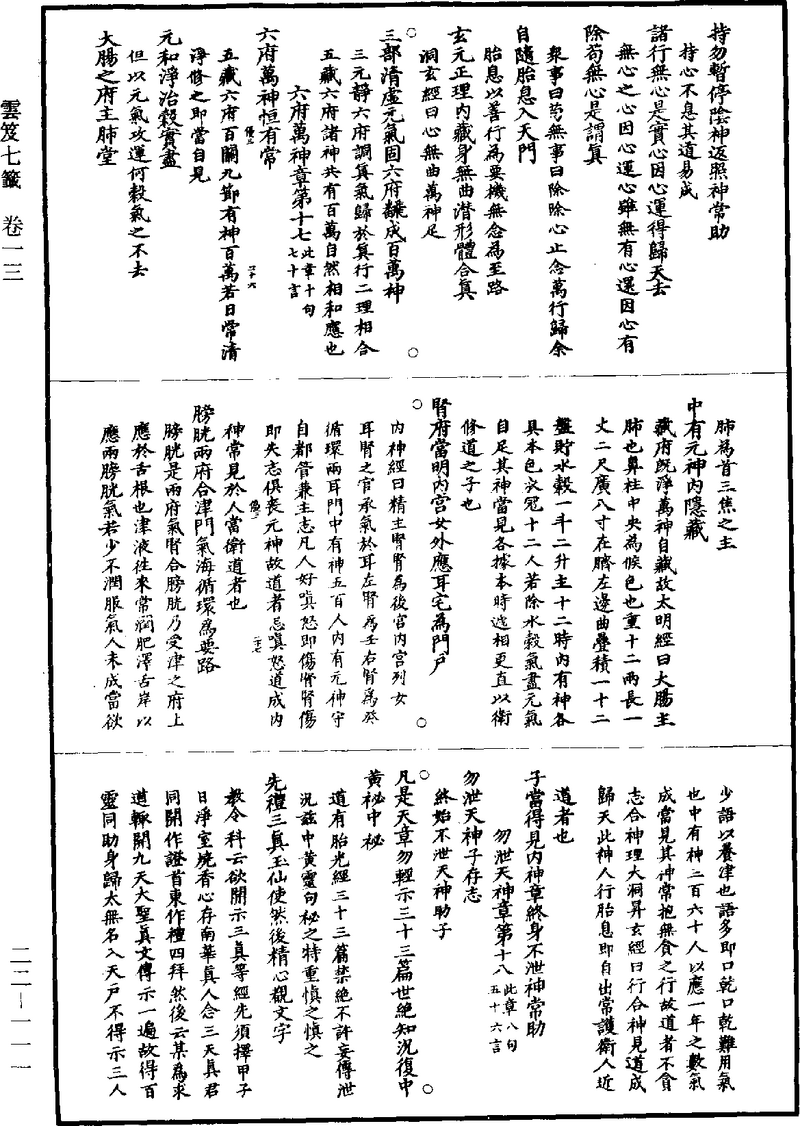 雲笈七籤 卷一三
二二—一一一
持勿暫停陰神返照神常助
持心不息其道易成
諸行無心是實心因心運得歸天去
無心之心因心運心雖無有心還因心有
除苟無心是謂眞
衆事曰苟無事曰除除心止念萬行歸余
自隨胎息入天門
胎息以善行為要機無念為至路
玄元正理內藏身無曲潛形體合眞
洞玄經曰心無曲萬神足
三部清虛元氣固六府翻成百萬神
三元靜六府調眞氣歸於眞行二理相合
五藏六府諸神共有百萬自然相和應也
六府萬神章第十七 此章十句七十言
六府萬神恒有常
五藏六府百關九節有神百萬若日常清
淨修之即當自見
元和淨治穀實盡
但以元氣攻運何穀氣之不去
大腸之府主肺堂
肺為首三焦之主
中有元神內隱藏
藏府既淨萬神自藏故太明經曰大腸主
肺也鼻柱中央為候色也重十二兩長一
丈二尺廣八寸在臍左邊曲疊積一十二
盤貯水穀一斗二升主十二時內有神各
具本色衣冠十二人若除水穀氣盡元氣
自足其神當見各據本時遞相更直以衛
修道之子也
腎府當明內宮女外應耳宅為門戶
內神經曰精主腎腎為後宮內宮列女
耳腎之官承氣於耳左腎為壬右腎為癸
循環兩耳門中有神五百人內有元神守
自都管兼主志凡人好嗔怒即傷腎腎傷
即失志俱喪元神故道者忌嗔怒道成內
神常見於人當衛道者也
膀胱兩府合津門氣海循環為要路
膀胱是兩府氣腎合膀胱乃受津之府上
應於舌根也津液往來常潤肥澤舌岸以
應兩膀胱氣若少不潤服氣人未成當欲
少語以養津也語多即口乾口乾難用氣
也中有神二百六十人以應一年之數氣
成當見其神常抱無貪之行故道者不貪
志合神理大洞昇玄經曰行合神見道成
歸天此神人行胎息即自出常護衛人近
道者也
子當得見內神章終身不泄神常助
勿泄天神章第十八 此章八句五十六言
勿泄天神子存志
終始不泄天神助子
凡是天章勿輕示三十三篇世絕知況復中
黃秘中秘
道有胎光經三十三篇禁絕不許妄傳泄
況茲中黃靈句秘之特重慎之慎之
先禮三眞玉仙使然後精心觀文字
教令科云欲開示三眞等經先須擇甲子
日淨室燒香心存南華眞人念三天眞君
同開作證首東作禮四拜然後云某為求
道輙開九天大聖眞文傳示一遍故得百
靈同助身歸太無名入天戶不得示三人